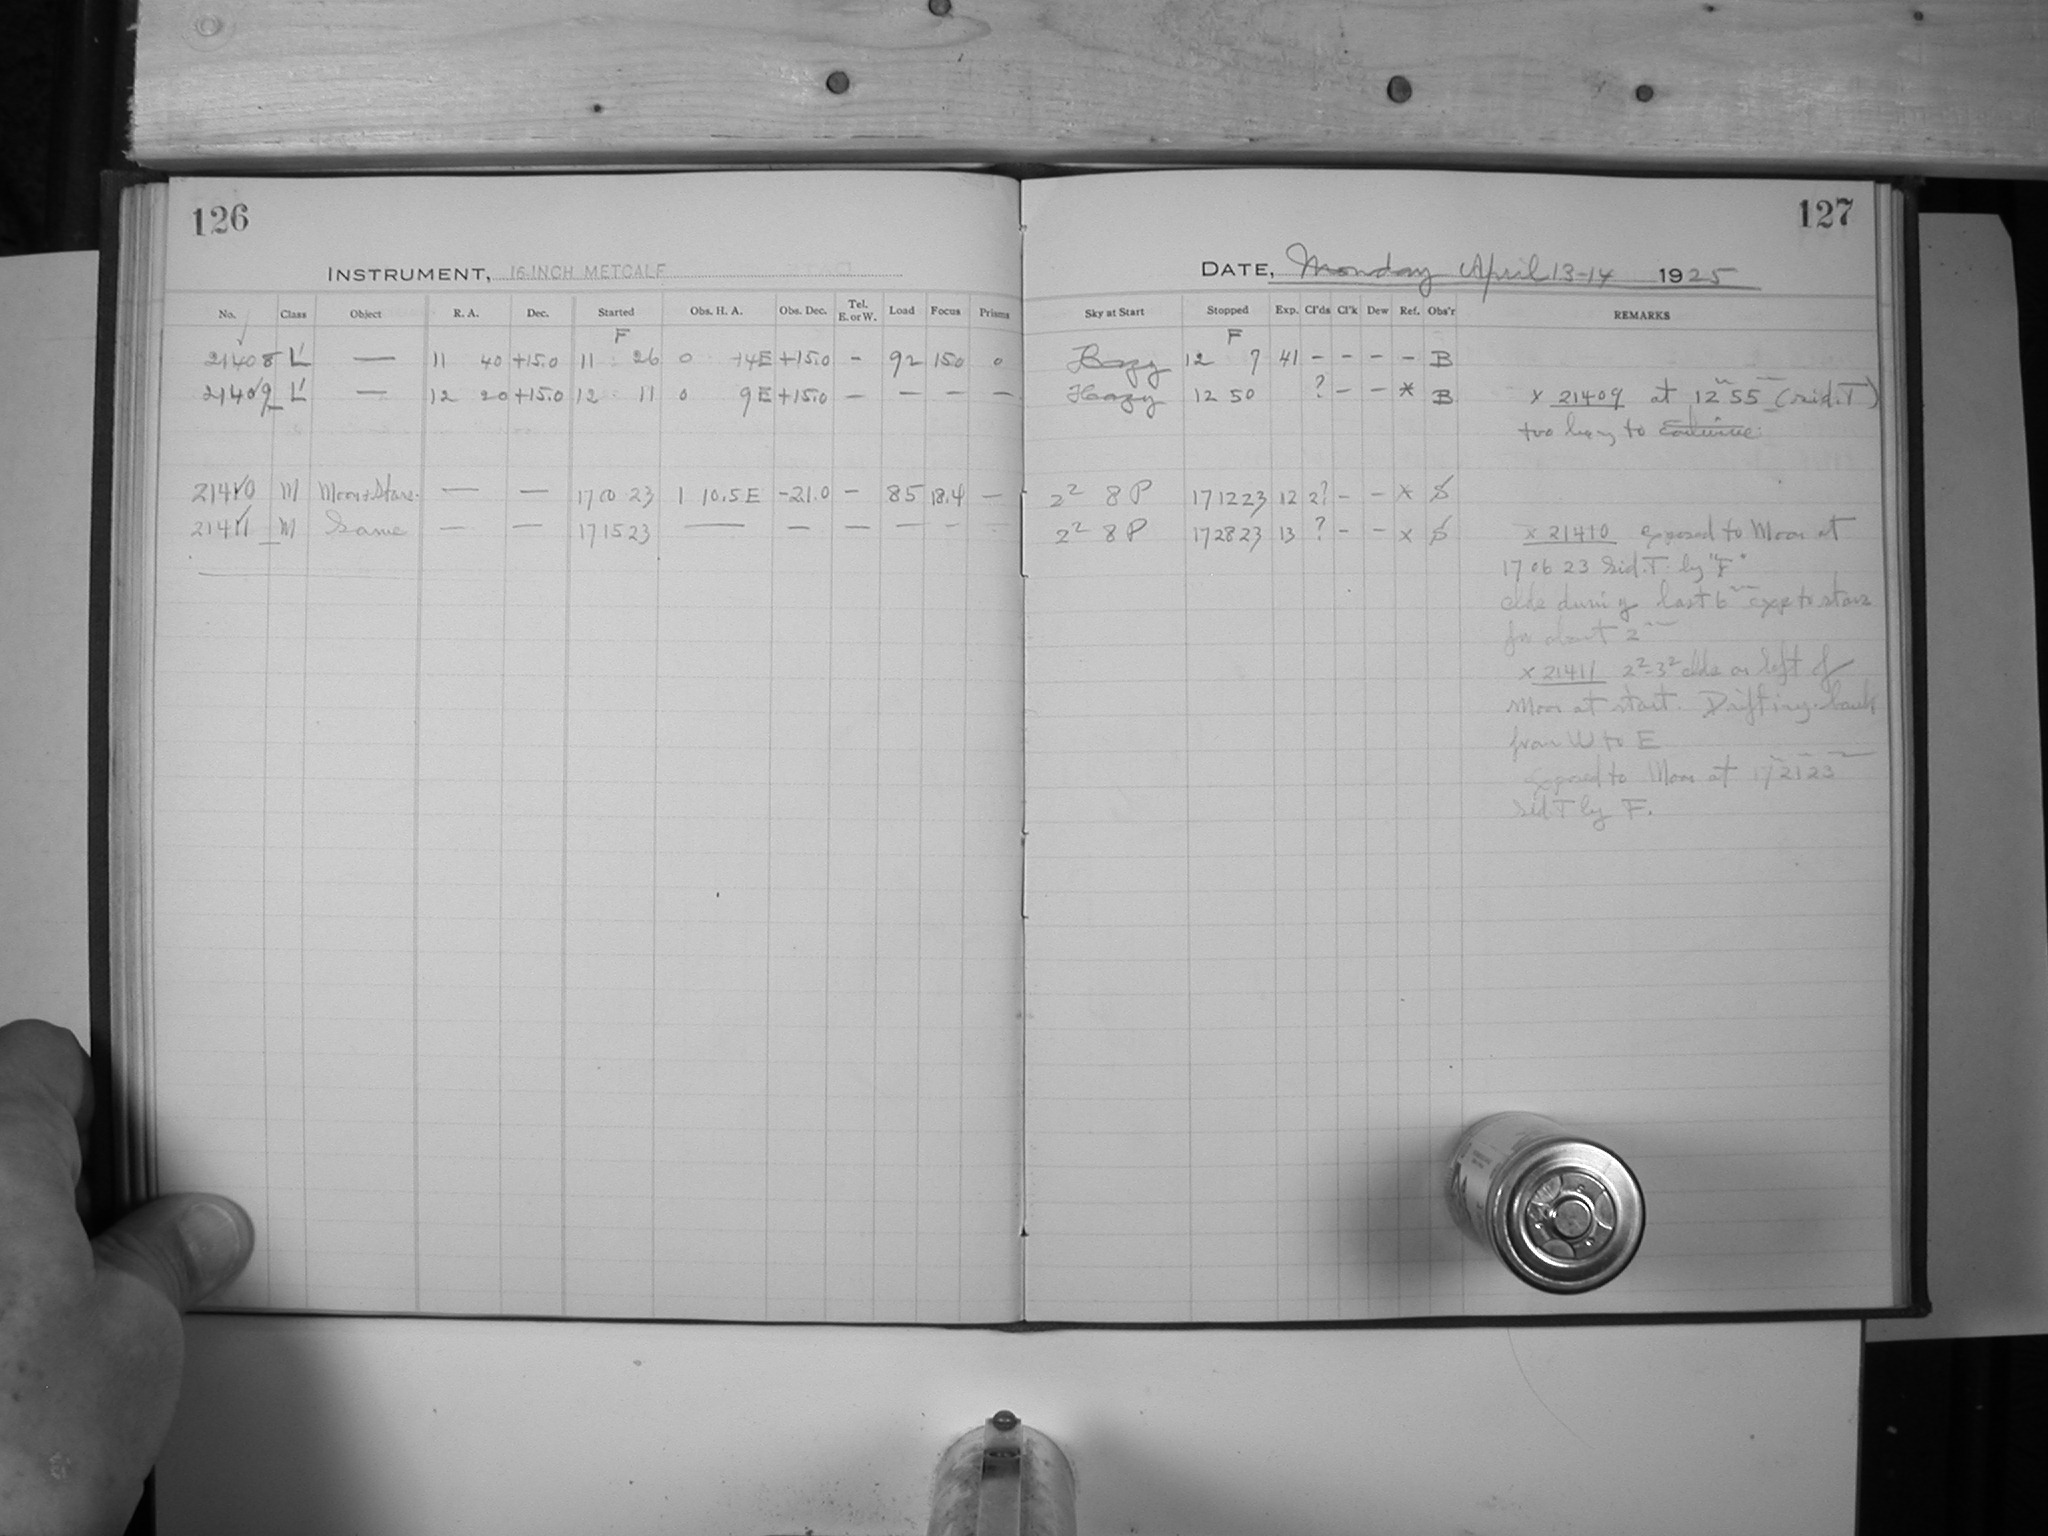 126
127
INSTRUMENT, 16-INCH METCALF
DATE, Monday April 13-14 1925
No. Class Object R. A. Dec. Started Obs. H. A. Obs. Dec. Tel. E. or W. Load Focus Prisms Sky at Start Stopped Exp. Cl'ds Cl'k Dew Ref. Obs'r REMARKS
F F
21408 L — 11 40 +15.0 11 26 0 14E +15.0 – 92 15.0 0 Hazy 12 7 41 – – – – B
21409 L — 12 20 +15.0 12 11 0 9E +15.0 – – – – Hazy 12 50 ? – – * B x 21409 at 12 55 (sid. T)
too hazy to continue
21410 M Moon+Stars. — — 17 00 23 1 10.5E -21.0 – 85 18.4 – 2² 8 P 17 12 23 12 2? – – x
21411 M Same — — 17 15 23 — — — – – 2² 8 P 17 28 23 13 ? – – x x 21410 exposed to Moon at
17 06 23 Sid. T. by "F"
clds during last 6ᵐ exp to stars
for about 2ᵐ
x 21411 2²-3² clds on left of
Moon at start. Drifting bank
from W to E
exposed to Moon at 17 21 23
Sid T by F.